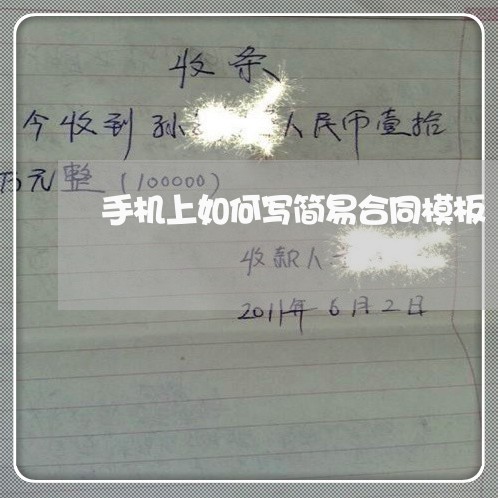 收条
今收到孙 人民币壹拾
万元整(100000)
手机上如何写简易合同模板
收款人
2011年6月2日